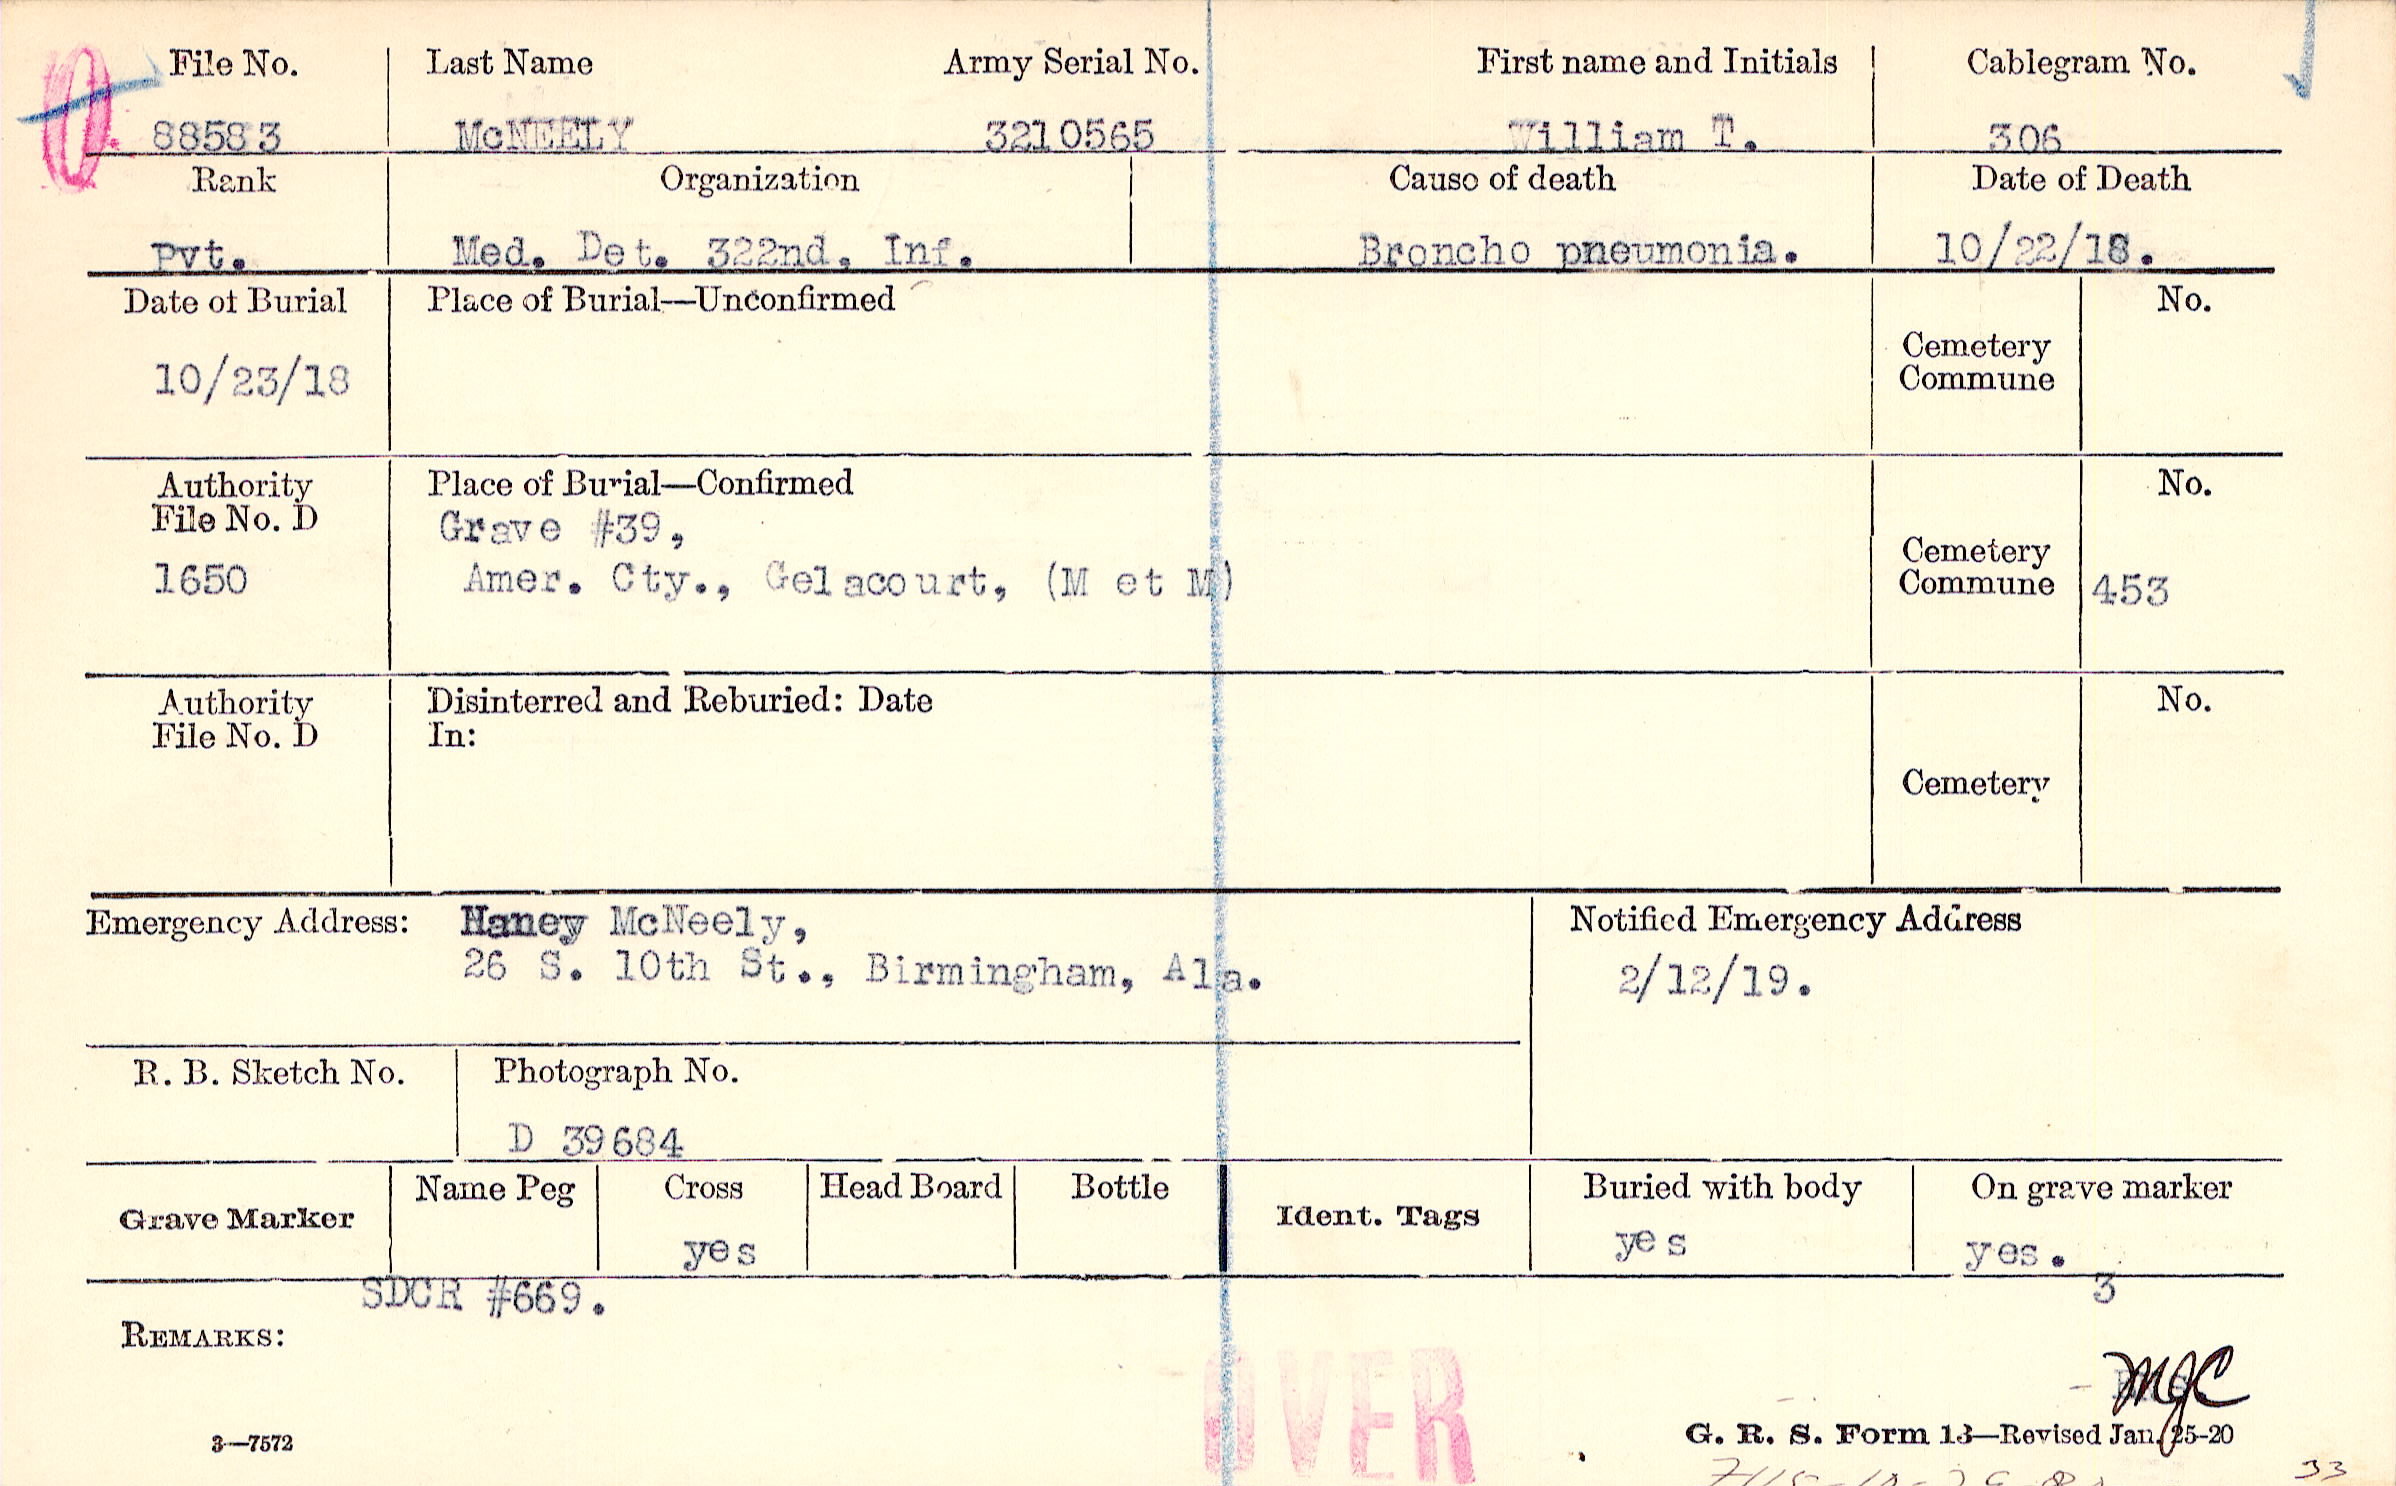 File No. Last Name Army Serial No. First name and Initials Cablegram No.
88583 McNEELY 3210565 William T. 306
Rank Organization Cause of death Date of Death
Pvt. Med. Det. 322nd. Inf. Broncho pneumonia. 10/22/18.
Date of Burial Place of Burial—Unconfirmed No.
10/23/18
Cemetery
Commune
Authority Place of Burial—Confirmed No.
File No. D
Grave #39,
1650 Amer. Cty., Gelacourt, (M et M)
Cemetery
Commune 453
Authority Disinterred and Reburied: Date No.
File No. D In:
Cemetery
Emergency Address: Haney McNeely, Notified Emergency Address
26 S. 10th St., Birmingham, Ala. 2/12/19.
R. B. Sketch No. Photograph No.
D 39684
Grave Marker Name Peg Cross Head Board Bottle Ident. Tags Buried with body On grave marker
yes yes yes.
3
SDCR #669.
REMARKS:
OVER
MJC
3—7572 G. R. S. Form 13—Revised Jan. 25-20
33